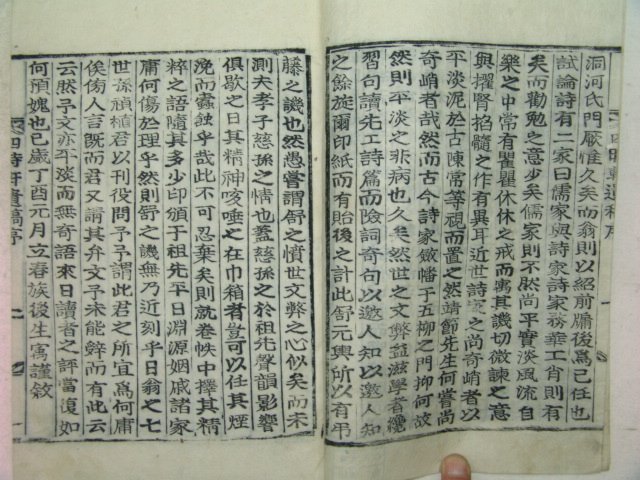 洞河氏門厥惟久矣而翁則以紹前牖後爲己任也
試論詩有二家曰儒家與詩家詩家務華工肖則有
矣而勸勉之意少矣儒家則不然尚平實淡風流自
樂之中常有瞿瞿休休之戒而寓其譏切微諫之意
與擢腎掐髓之作有異耳近世詩家之尚奇峭者以
平淡泥於古陳常等視而置之然靖節先生何嘗尚
奇峭者哉然而古今詩家斂幡于五柳之門抑何故
然則平淡之非病也久矣然世之文弊益滋學者纔
習句讀先工詩篇而險詞奇句以邀人知以邀人知
之餘旋爾印紙而有貽後之計此舒元輿所以有弔
藤之譏也然愚嘗謂舒之憤世文弊之心似矣而未
測夫孝子慈孫之情也蓋慈孫之於祖先聲韻影響
俱歇之日其精神咳唾之在巾箱者豈可以任其煙
浼而蠹蝕乎哉此不可忍棄矣則就卷帙中擇其精
粹之語隨其多少印頒于祖先平日淵源姻戚諸家
庸何傷於理乎然則舒之譏無乃近刻乎日翁之七
世孫頑植君以刊役問予予謂此君之所宜爲何庸
俟傍人言既而君又請其弁文予未能辭而有此云
云然予文亦平淡而無奇語來日讀者之評當復如
何預媿也已歲丁酉元月立春族後生寓謹敘
四時軒遺稿序